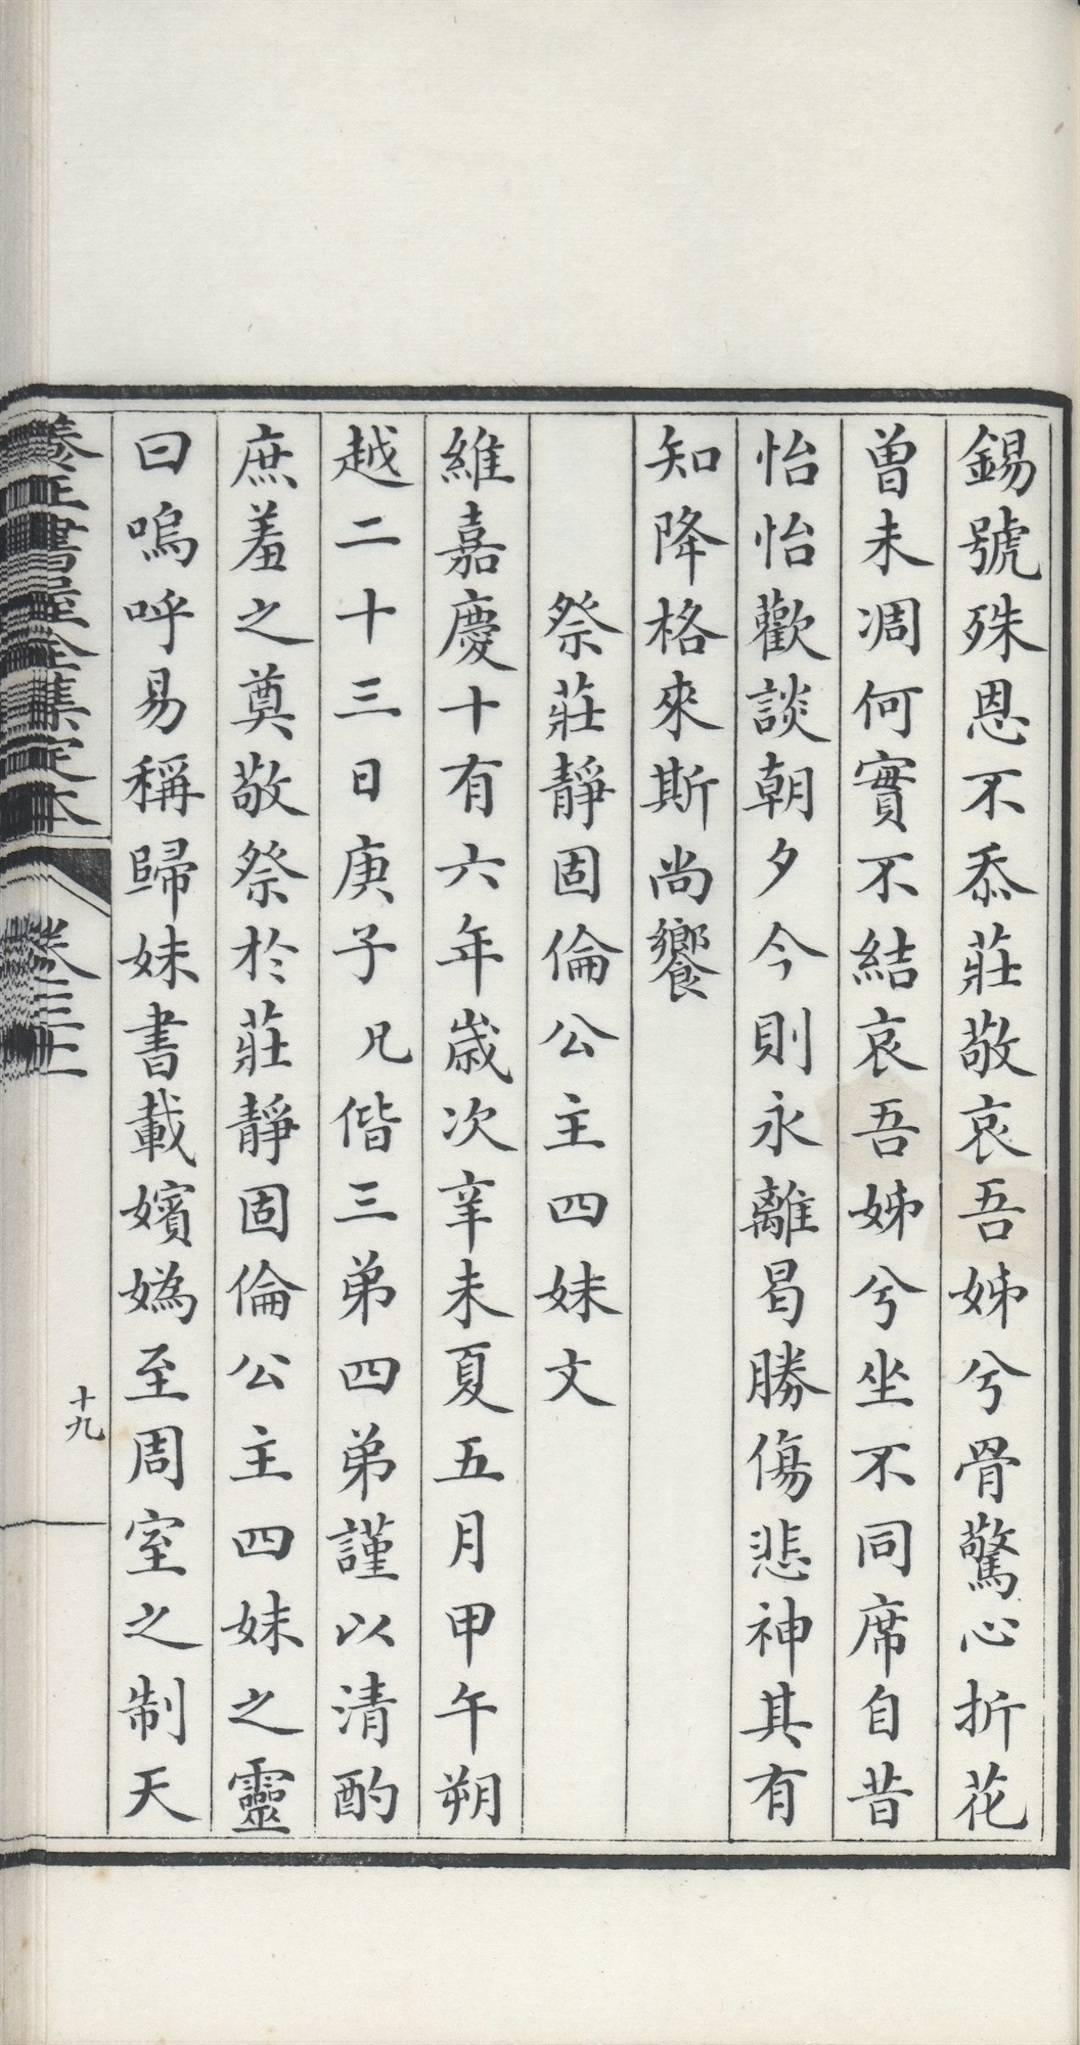 錫號殊恩不忝莊敬哀吾姊兮骨驚心折花
曾未凋何實不結哀吾姊兮坐不同席自昔
怡怡歡談朝夕今則永離曷勝傷悲神其有
知降格來斯尚饗
祭莊靜固倫公主四妹文
維嘉慶十有六年歲次辛未夏五月甲午朔
越二十三日庚子兄偕三弟四弟謹以清酌
庶羞之奠敬祭於莊靜固倫公主四妹之靈
曰嗚呼易稱歸妹書載嬪媯至周室之制天
養正書屋全集定本
卷三上
十九